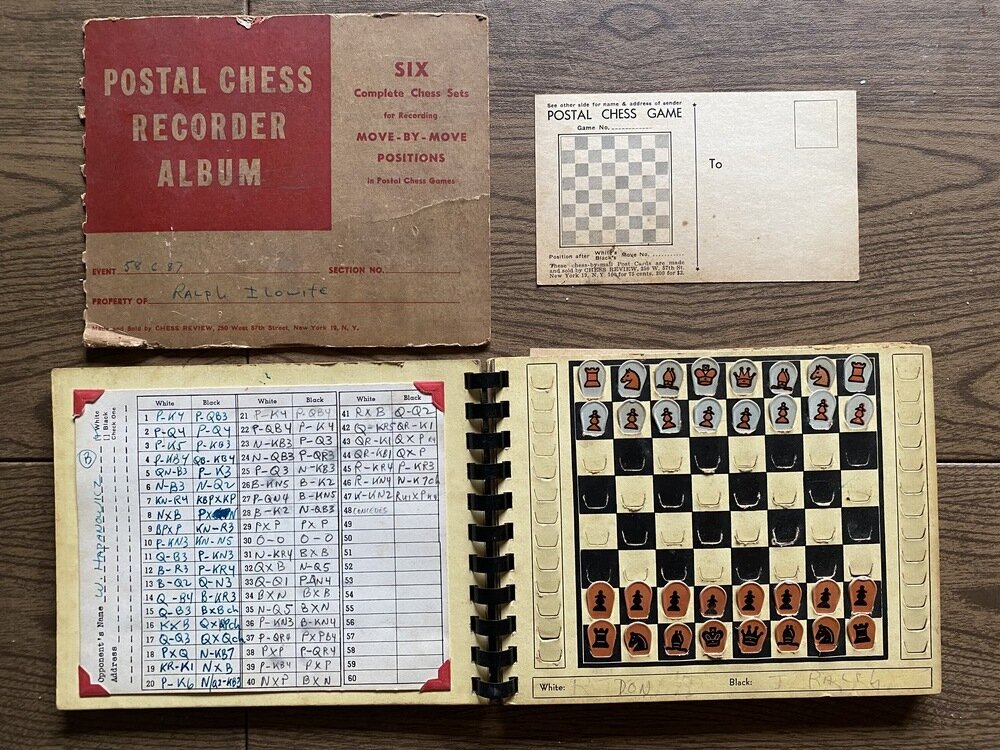 POSTAL CHESS
RECORDER
ALBUM
SIX
Complete Chess Sets
for Recording
MOVE-BY-MOVE
POSITIONS
in Postal Chess Games
EVENT 58 C 87 SECTION NO.
PROPERTY OF RALPH ILOWITE
Made and Sold by CHESS REVIEW, 250 West 57th Street, New York 19, N. Y.
See other side for name & address of sender
POSTAL CHESS GAME
Game No.
To
Position after White's Black's Move No.
These chess-by-mail Post Cards are made
and sold by CHESS REVIEW, 250 W. 57th St.
New York 19, N. Y. 100 for 75 cents. 300 for $2.
White
[] Black
Check One
Opponent's Name W.
Address
White Black
1 P-K4 P-QB3
2 P-Q4 P-Q4
3 P-K5 P-KB3
4 P-KB4 QB-KB4
5 QN-B3 P-K3
6 N-B3 N-Q2
7 KN-R4 KBPXKP
8 NXB
9 BPXP KN-R3
10 P-KN3 KN-N5
11 Q-B3 P-KN3
12 B-R3 P-KR4
13 B-Q2 Q-N3
14 Q-B4 B-KR3
15 Q-B3 BxBch
16 KXB
17 Q-Q3 QXQch
18 PXQ N-KB7
19 KR-K1 NXB
20 P-K6
White Black
21 P-K4 P-QB4
22 P-QB4 P-K4
23 N-KB3 P-Q3
24 N-QB3 P-QR3
25 P-Q3 N-KB3
26 B-KN5 B-K2
27 P-QN4 B-KN5
28 B-K2 N-QB3
29 PXP PXP
30 O-O O-O
31 N-KR4 BXB
32 QXB N-Q5
33 Q-Q1
34 BXN BXB
35 N-Q5 BXN
36 P-KN3 B-KN4
37 P-QR4
38 PXP P-QR4
39 P-KB4 PXP
40 NXP BXN
White Black
41 RXB Q-Q2
42 QR-K1
43 QR-K1
44 QR-KB1 QXP
45 R-KR4 P-KR3
46 R-KN4
47 K-KN2
48 CONCEDES
49
50
51
52
53
54
55
56
57
58
59
60
White: DON Black: RALPH